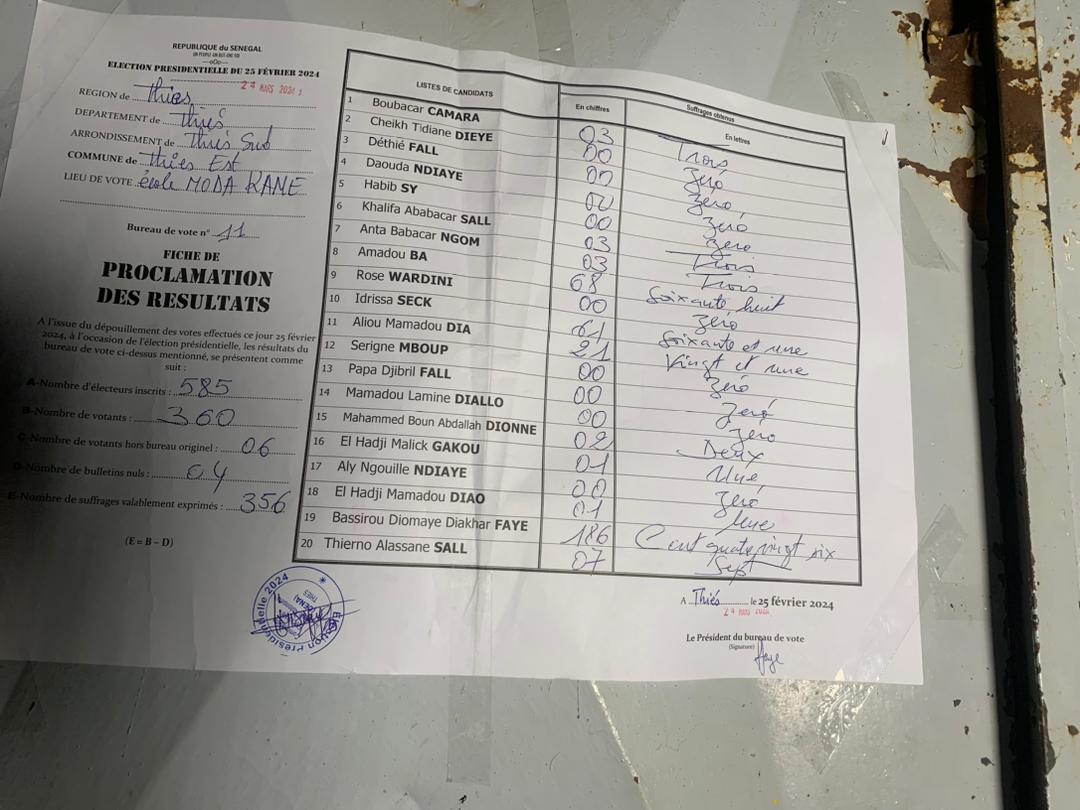 REPUBLIQUE du SENEGAL
UN PEUPLE-UN BUT-UNE FOI
---oOo---
ELECTION PRESIDENTIELLE DU 25 FÉVRIER 2024
24 MARS 2024
REGION de Thies
DEPARTEMENT de Thiès
ARRONDISSEMENT de Thiès Sud
COMMUNE de Thies Est
LIEU DE VOTE école MODA KANE
Bureau de vote n° 11
FICHE DE
PROCLAMATION
DES RESULTATS
A l'issue du dépouillement des votes effectués ce jour 25 février
2024, à l'occasion de l'élection présidentielle, les résultats du
bureau de vote ci-dessus mentionné, se présentent comme
suit :
A-Nombre d'électeurs inscrits : 585
B-Nombre de votants : 360
C-Nombre de votants hors bureau originel : 06
D-Nombre de bulletins nuls : 04
E-Nombre de suffrages valablement exprimés : 356
(E = B – D)
LISTES DE CANDIDATS
Suffrages obtenus
En chiffres
En lettres
1 Boubacar CAMARA 03 Trois
2 Cheikh Tidiane DIEYE 00 Zéro
3 Déthié FALL 00 Zéro
4 Daouda NDIAYE 00 Zéro
5 Habib SY 00 Zéro
6 Khalifa Ababacar SALL 03 Trois
7 Anta Babacar NGOM 03 Trois
8 Amadou BA 68 Soixante huit
9 Rose WARDINI 00 Zéro
10 Idrissa SECK 61 Soixante et une
11 Aliou Mamadou DIA 21 Vingt et une
12 Serigne MBOUP 00 Zéro
13 Papa Djibril FALL 00 Zéro
14 Mamadou Lamine DIALLO 00 Zéro
15 Mahammed Boun Abdallah DIONNE 02 Deux
16 El Hadji Malick GAKOU 01 Une
17 Aly Ngouille NDIAYE 00 Zéro
18 El Hadji Mamadou DIAO 01 Une
19 Bassirou Diomaye Diakhar FAYE 186 Cent quatre vingt six
20 Thierno Alassane SALL 07 Sept
A Thiès le 25 février 2024
24 MARS 2024
Le Président du bureau de vote
(Signature)
Election Présidentielle 2024
(CENA)
THIES